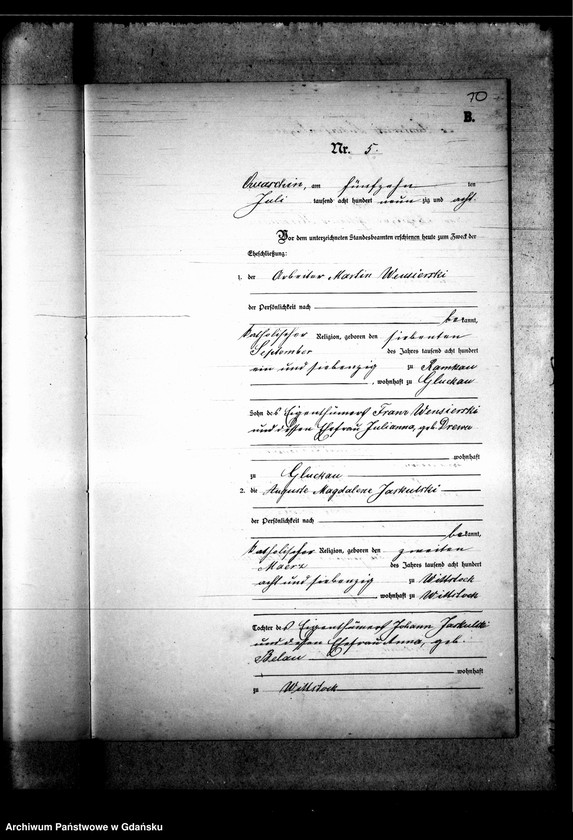 10
B.
Nr. 5.
Quaschin, am fünfzehn ten
Juli tausend acht hundert neun zig und acht.
Vor dem unterzeichneten Standesbeamten erschienen heute zum Zweck der
Eheschließung:
1. der Arbeiter Martin Wensierski
der Persönlichkeit nach
be kannt,
katholischer Religion, geboren den siebenten
September des Jahres tausend acht hundert
ein und siebenzig zu Ramkau
, wohnhaft zu Gluckau
Sohn des Eigenthümers Franz Wensierski
und dessen Ehefrau Julianna, geb. Drewa
wohnhaft
zu Gluckau
2. die Auguste Magdalene Jaskulski
der Persönlichkeit nach
be kannt,
katholischer Religion, geboren den zweiten
Maerz des Jahres tausend acht hundert
acht und siebenzig zu Wittstock
, wohnhaft zu Wittstock
Tochter des Eigenthümers Johann Jaskulski
und dessen Ehefrau Anna, geb.
Belau
wohnhaft
zu Wittstock
Archiwum Państwowe w Gdańsku